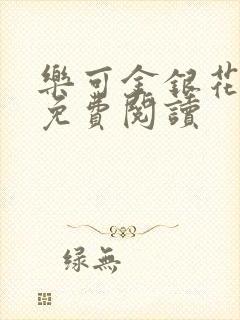 樂可金銀花
免費閱讀
绿無